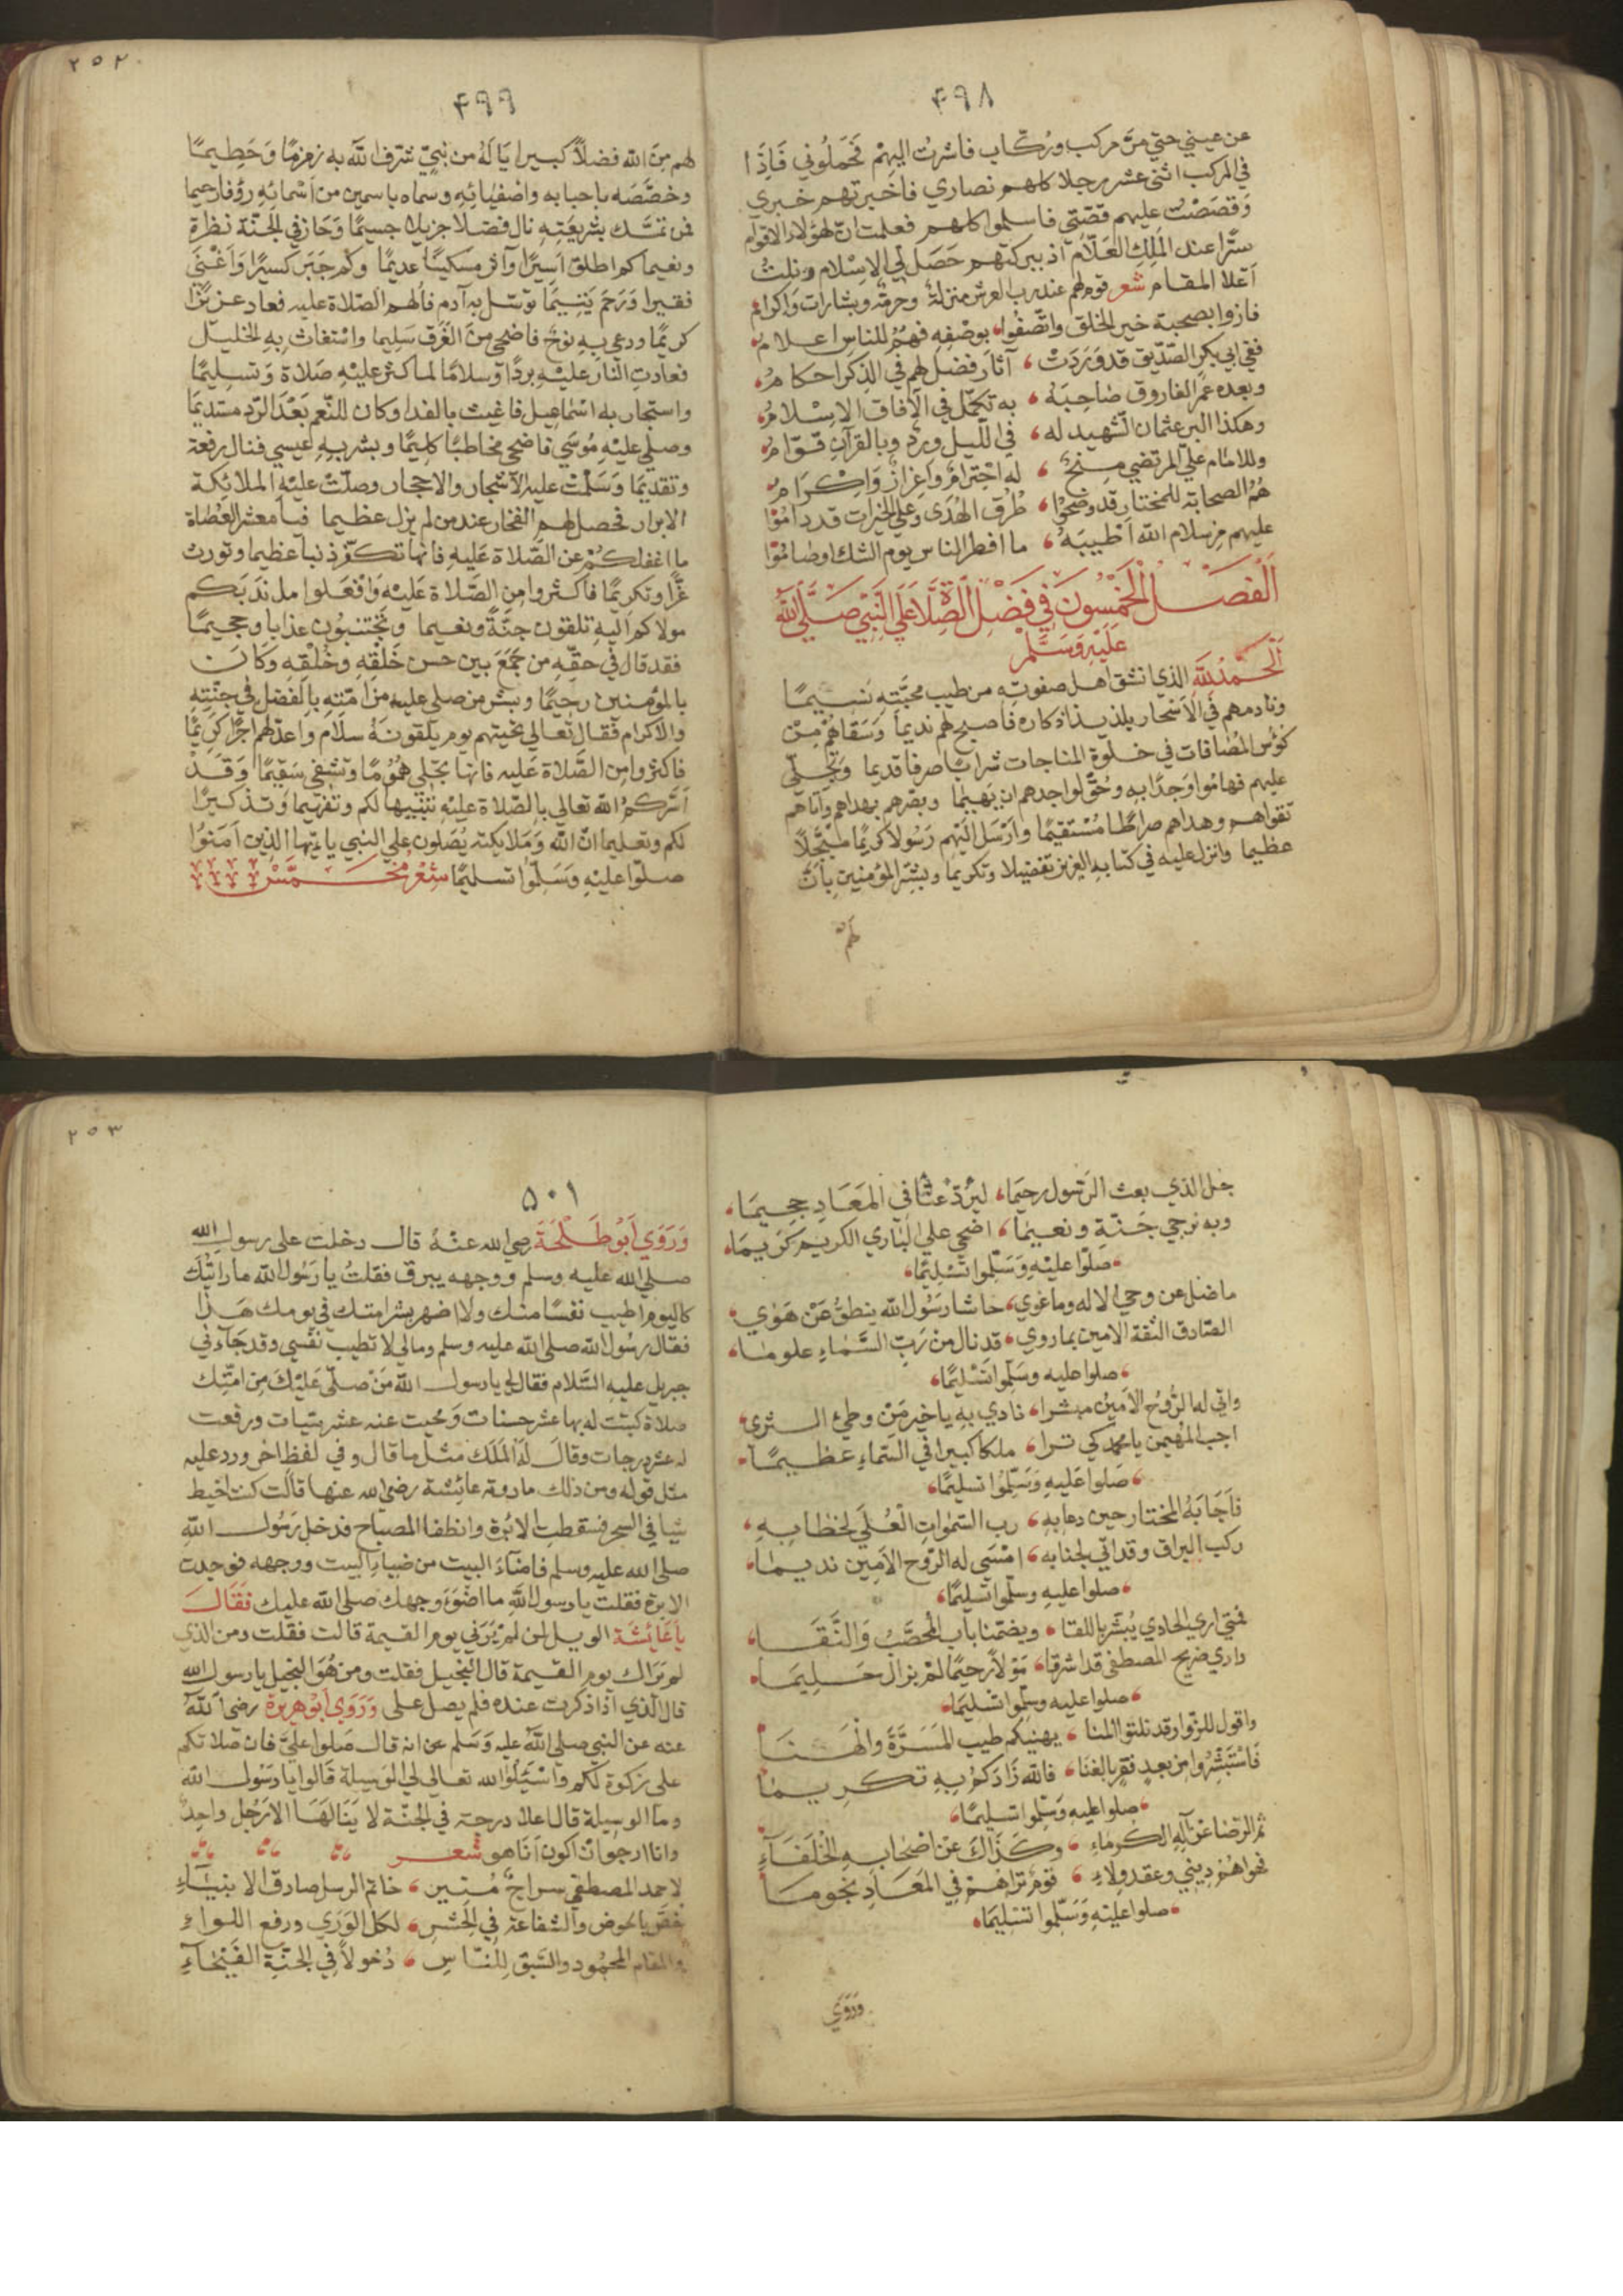 ٤٩٨
عن عيني حتي مرّ مركب وركاب فاشرت اليهم فحملوني فاذا
في المركب اثني عشر رجلا كلهم نصاري فاخبرتهم خبري
وقصصت عليهم قصتي فاسلموا كلهم فعلمت ان لهؤلاء الاقوام
سرّا عند الملك العلّام اذ ببركتهم حصل لي الاسلام ونلت
اعلا المقام شعر قوم لهم عند رب العرش منزلة وحرمة وبشارات واكرام
فازوا بصحبة خير الخلق واتصفوا بوصفه فهم للناس اعلام
ففي ابي بكر الصدّيق قد وردت آثار فضل لهم في الذكر احكام
وبعده عمر الفاروق صاحبه به تكمّل في الآفاق الاسلام
وهكذا البر عثمان الشهيد له في الليل ورد وبالقرآن قوّام
وللامام علي المرتضي منح له احترام واعزاز واكرام
هم الصحابة للمختار قد وضحوا طرق الهدى وعلي الخيرات قد داموا
عليهم من سلام الله اطيبه ما افطر الناس يوم الشك او صاموا
الفصل الخمسون في فضل الصلاة علي النبي صلي الله
عليه وسلم
الحمد لله الذي انشق اهل صفوته من طيب محبته نسيمًا
ونادمهم في الاسحار بلذيذ اذكاره فاصبح لهم نديما وسقاهم من
كؤس المصافات في خلوة المناجات شرابًا صرفا قديما وتجلّي
عليهم فهاموا وجدًا به وحقّ لواجدهم ان يهيما وبصرهم بهداهم وآتاهم
تقواهم وهداهم صراطًا مستقيمًا وارسل اليهم رسولا كريمًا مبجّلًا
عظيما وانزل عليه في كتابه العزيز تفضيلا وتكريما وبشّر المؤمنين بانّ
لهم
٢٥٢
٤٩٩
لهم من الله فضلًا كبيرا ياله من نبيّ شرّف الله به زمزمًا وحطيمًا
وخصّصه باحبابه واصفيائه وسماه باسمين من اسمائه رؤفا رحيما
فمن تمسّك بشريعته نال فضلا جزيلا جسيمًا وحاز في الجنّة نظرة
ونعيما كم اطلق اسيرًا وآثر مسكينًا عديمًا وكم جبر كسيرًا واغنى
فقيرا ورحم يتيمًا توسّل به آدم فالهم الصّلاة عليه فعاد عزيزًا
كريمًا ودعي به نوح فاضحى من الغرق سليما واستغاث به الخليل
فعادت النّار عليه بردًا وسلامًا لما كثر عليه صلاة وتسليمًا
واستجار به اسماعيل فاغيث بالفدا وكان للنّعم بعد الردّ مستديمًا
وصلي عليه موسي فاضحي مخاطبًا كليمًا وبشر به عيسي فنال رفعة
وتقديمًا وسلّمت عليه الاشجار والاحجار وصلّت عليه الملائكة
الابرار فحصل لهم الفخار عند من لم يزل عظيما فيا معشر العصاة
ما اغفلكم عن الصّلاة عليه فانّها تكفّر ذنبًا عظيما وتورث
عزًّا وتكريمًا فاكثروا من الصّلاة عليه وافعلوا ما ندبكم
مولاكم اليه تلقون جنّةً ونعيما وتجتنبون عذابا وجحيمًا
فقد قال في حقّه من جمع بين حسن خَلقه وخُلُقه وكان
بالمؤمنين رحيمًا وبشر من صلي عليه من امّته بالفضل في جنّته
والاكرام فقال تعالي تحيتهم يوم يلقونه سلام واعدّ لهم اجرًا كريمًا
فاكثروا من الصّلاة عليه فانّها تجلي همومًا وتشفي سقيمًا وقد
امركم الله تعالي بالصّلاة عليه تنبيهًا لكم وتفهيما وتذكيرًا
لكم وتعليما انّ الله وملائكته يصلون علي النبي يا ايّها الذين آمنوا
صلّوا عليه وسلّموا تسليمًا شعر مخمّس
جل الذي بعث الرّسول رحيمًا ليردّ عنّا في المعاد جحيمًا
وبه نرجي جنّة ونعيما اضحي علي الباري الكريم كريمًا
صلّوا عليه وسلّموا تسليمًا
ما ضل عن وحي الاله وما غوي حاشا رسول الله ينطق عن هوي
الصّادق الثقة الامين بما روي قد نال من ربّ السّماء علوما
صلوا عليه وسلّموا تسليمًا
واتي له الرّوح الامين مبشرا نادي به يا خير من وطئ الثري
اجب المهيمن يا محمد كي ترا ملكا كبيرا في السّماء عظيمًا
صلوا عليه وسلّموا تسليمًا
فاجابه المختار حين دعا به رب السموات العُلَي لخطابه
ركب البراق وقد اتي لجنابه امسي له الرّوح الامين نديما
صلوا عليه وسلّموا تسليمًا
فمتي اري الحادي يُبشّر باللقا ويضمّنا باب المحصّب والنّقا
واري ضريح المصطفي قد اشرقا مولًا رحيمًا لم يزال حليمًا
صلوا عليه وسلّموا تسليمًا
واقول للزوار قد نلتوا المنا يهنيكم طيب المسرّة والهنا
فاستبشروا من بعد فقر بالغنا فالله زادكم به تكريما
صلوا عليه وسلّموا تسليمًا
ثم الرّضا عن آله الكرماء وكذاك عن اصحابه الخلفاء
فحواهم ديني وعقد ولاء قوم تراهم في المعاد نجوما
صلوا عليه وسلّموا تسليمًا
وروي
٢٥٣
٥٠١
وروي ابو طلحة رضي الله عنه قال دخلت على رسول الله
صلي الله عليه وسلم ووجهه يبرق فقلت يا رسول الله ما رايتك
كاليوم اطيب نفسًا منك ولا اضهر بشرا منك في يومك هذا
فقال رسول الله صلي الله عليه وسلم ومالي لا تطيب نفسي وقد جاءني
جبريل عليه السّلام فقال لي يا رسول الله من صلّي عليك من امّتك
صلاة كتبت له بها عشر حسنات ومحيت عنه عشر سيّيات ورفعت
له عشر درجات وقال له الملك مثل ما قال وفي لفظ اخر ورد عليه
مثل قوله ومن ذلك ما روته عائشة رضي الله عنها قالت كنت اخيط
شيا في السحر فسقطت الابرة وانطفا المصباح فدخل رسول الله
صلي الله عليه وسلم فاضاءَ البيت من ضياء البيت ووجهه فوجدت
الابرة فقلت يا رسول الله ما اضوَءَ وجهك صلي الله عليك فقال
يا عائشة الويل لمن لم يرني يوم القيمة قالت فقلت ومن الذي
لم يراك يوم القيمة قال البخيل فقلت ومن هو البخيل يا رسول الله
قال الذي اذا ذكرت عنده فلم يصل على وروي ابو هريرة رضي الله
عنه عن النبي صلي الله عليه وسلم عن انه قال صلوا عليّ فان صلاتكم
على زكوة لكم واسئلوا الله تعالي لي الوسيلة قالوا يا رسول الله
وما الوسيلة قال اعلا درجة في الجنّة لا ينالها الا رجل واحد
وانا ارجوا ان اكون انا هو شعر
لاحمد المصطفي سراج مُنير خاتم الرسل صادق الانبياءِ
خصّ بالحوض والشفاعة في الحشر لكل الوري ورفع اللواءِ
والمقام المحمود والسّبق للنّاس دخولًا في الجنّة الفيحاءِ